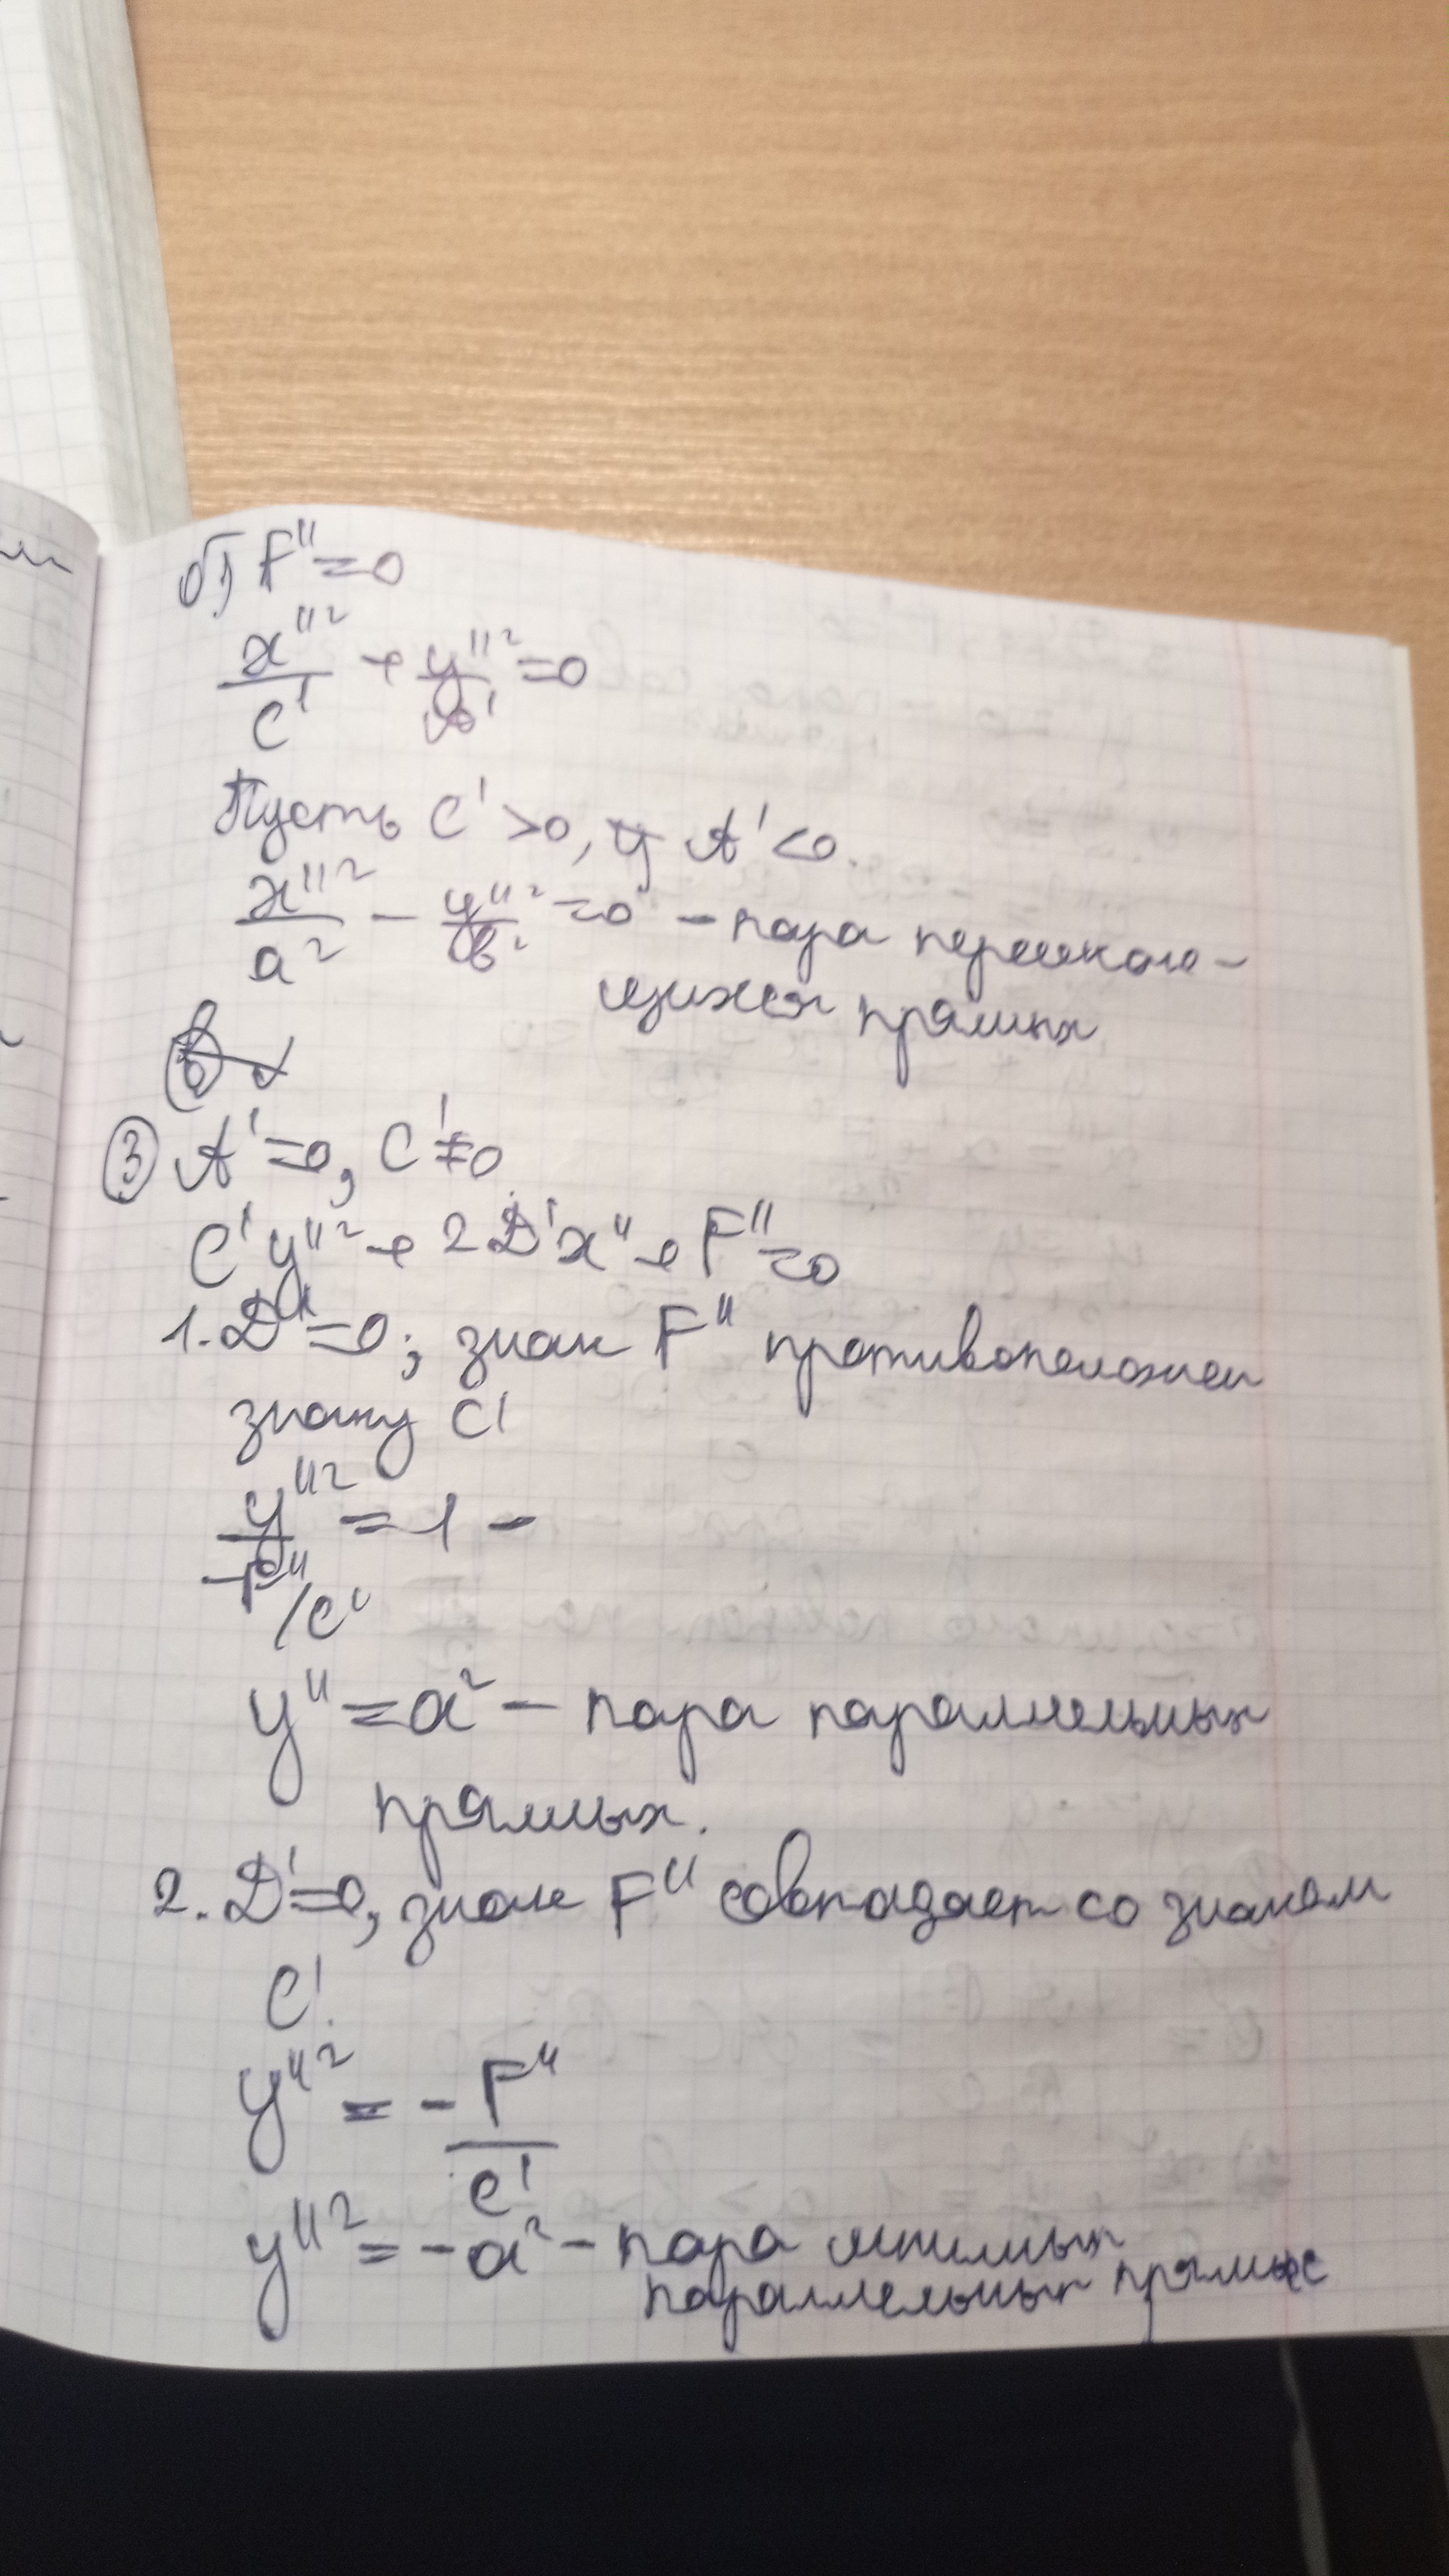 б) F'' = 0
x''²/C' + y''²/A' = 0
Пусть C' > 0, A' < 0.
x''²/a² − y''²/в² = 0 – пара пересекаю-
щихся прямых
③ A' = 0, C' ≠ 0
C'y''² + 2D'x'' + F'' = 0
1. D' = 0; знак F'' противоположен
знаку C'
y''²/(−F''/C') = 1 –
y'' = a² – пара параллельных
прямых.
2. D' = 0, знак F'' совпадает со знаком
C'.
y''² = −F''/C'
y''² = −a² – пара мнимых
параллельных прямых